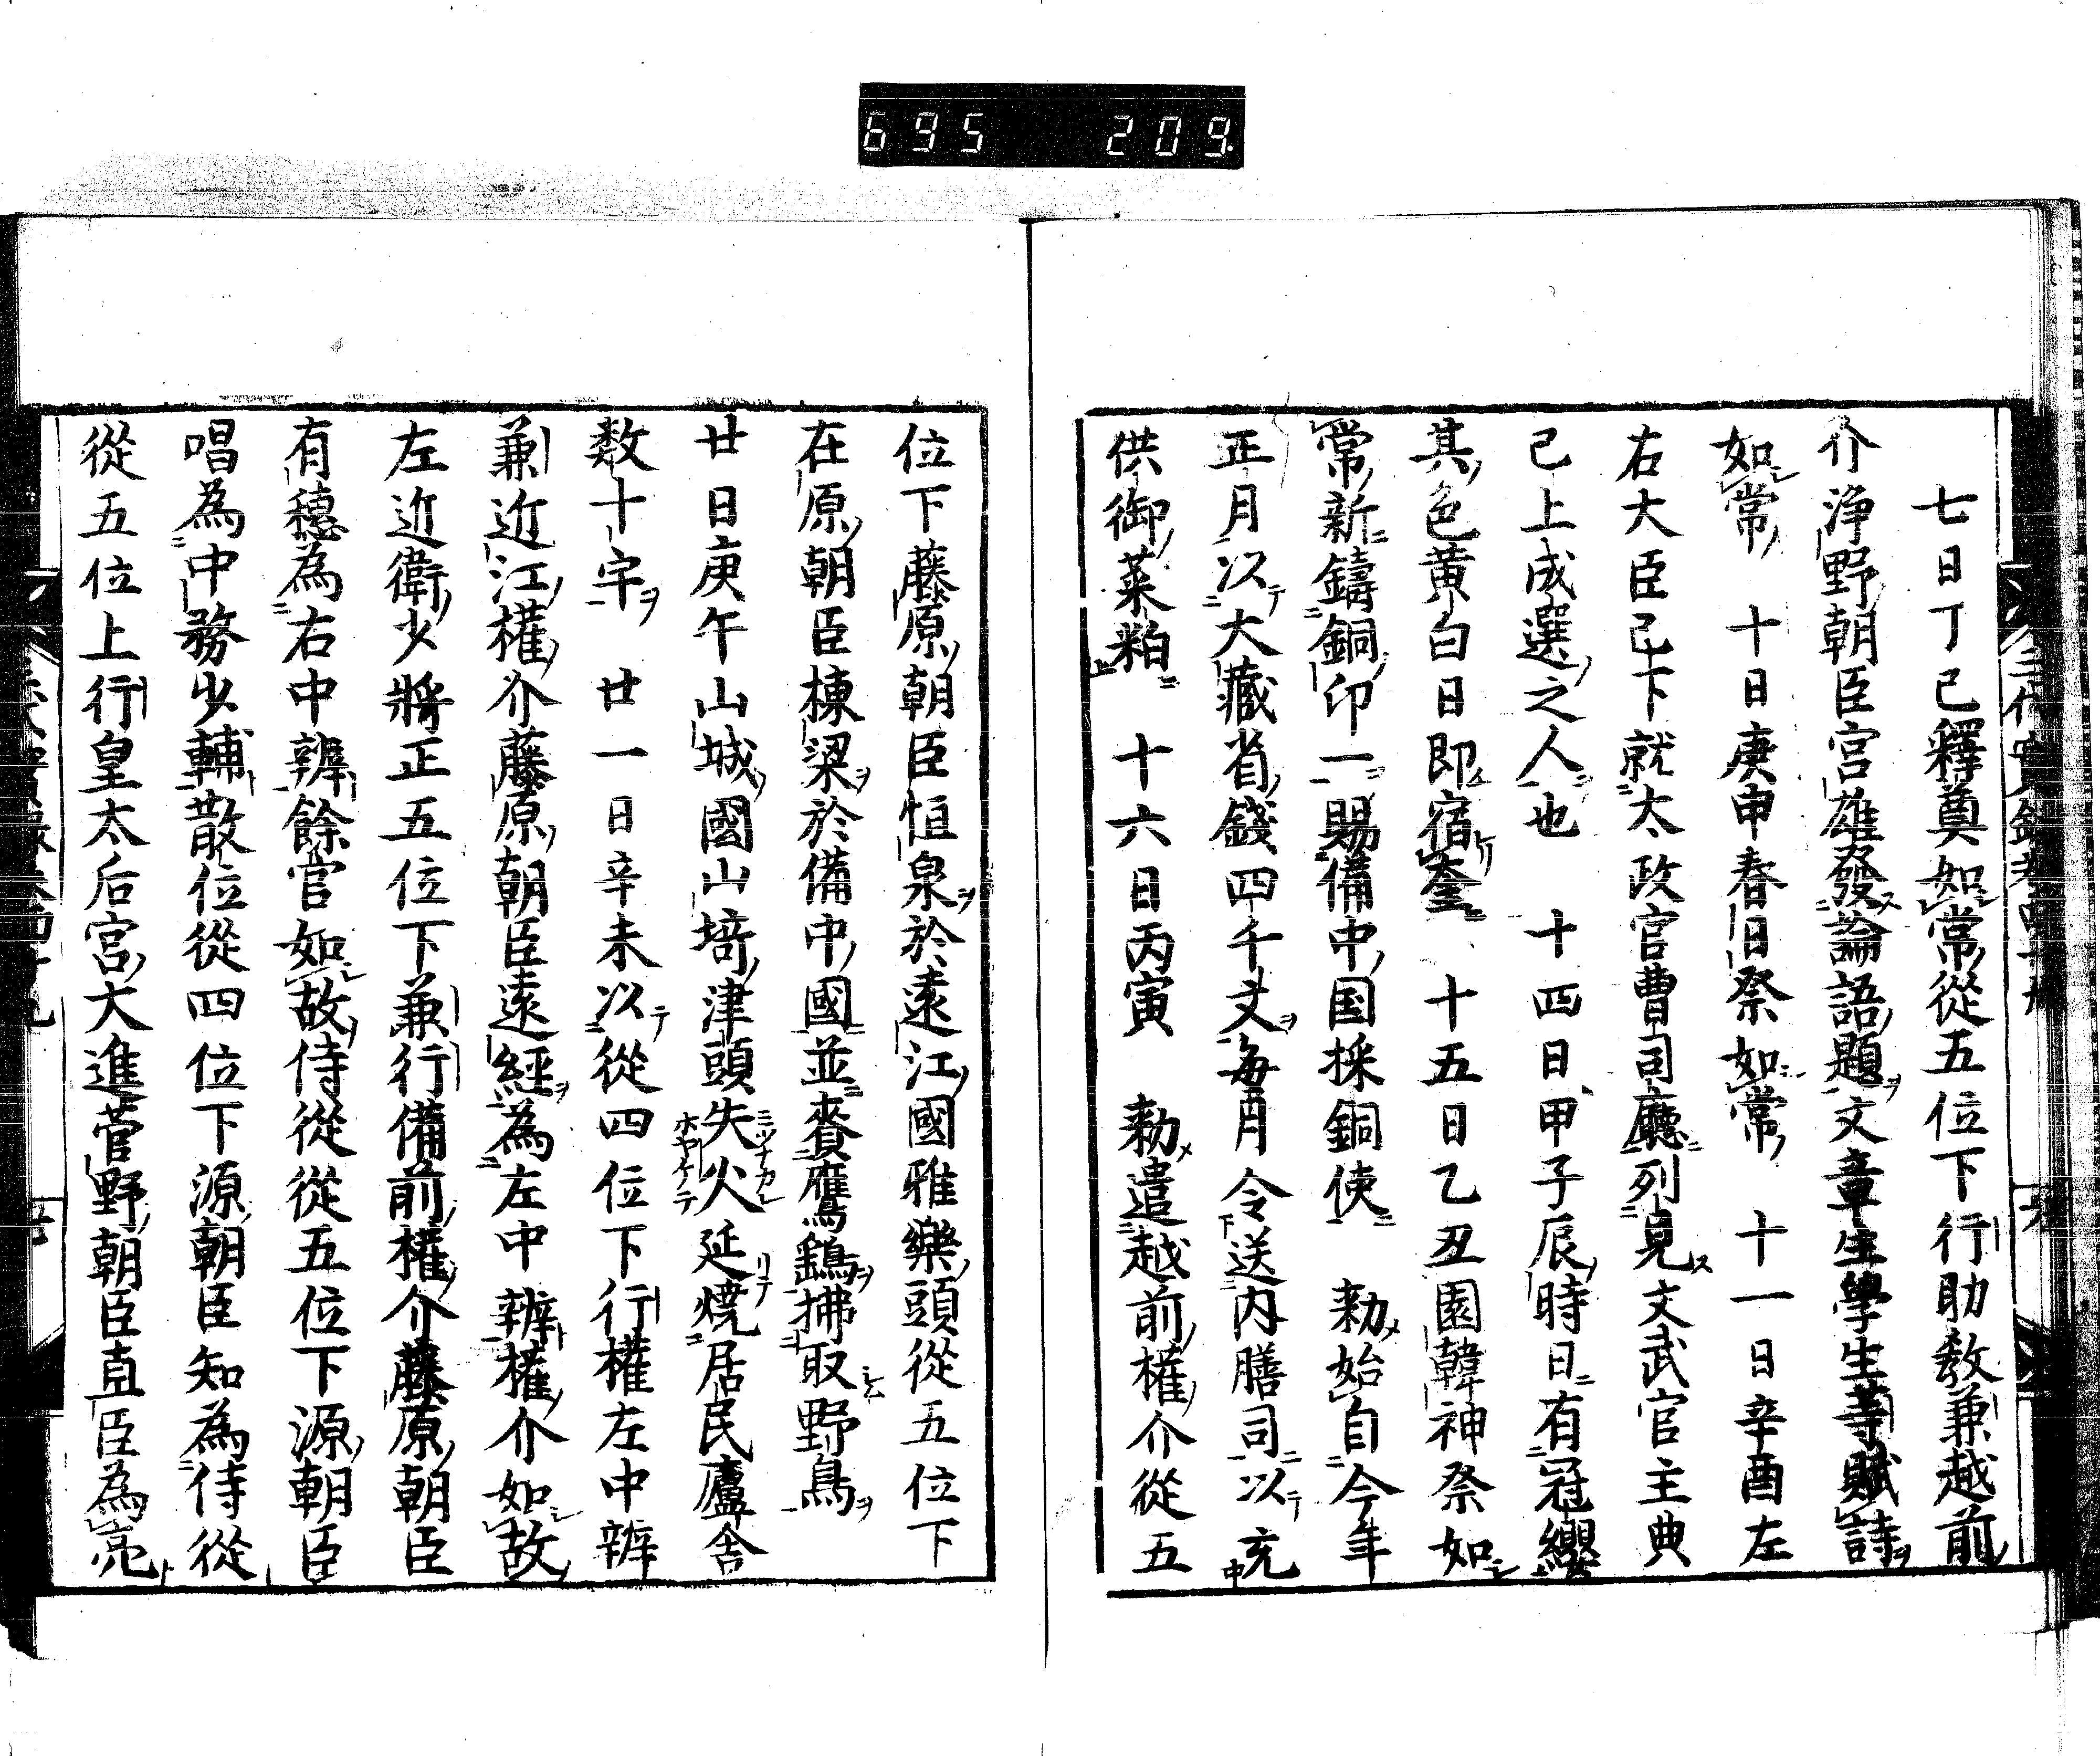 695 209
七日丁巳釋奠如常從五位下行助敎兼越前
介淨野朝臣宮雄發論語題文章生學生等賦詩
如常　十日庚申春日祭如常　十一日辛酉左
右大臣已下就太政官曹司廳列見文武官主典
已上成選之人也　十四日甲子辰時日有冠纓
其色黄白日即宿奎　十五日乙丑園韓神祭如
常新鑄銅印一賜備中国採銅使　勅始自今年
正月以大藏省錢四千文每月令送内膳司以充
供御菜粕　十六日丙寅　勅遣越前權介從五
位下藤原朝臣恒泉於遠江國雅樂頭從五位下
在原朝臣棟梁於備中國並賫鷹鷂拂取野鳥
廿日庚午山城國山埼津頭失火延燒居民廬舍
数十宇　廿一日辛未以從四位下行權左中辨
兼近江權介藤原朝臣遠經為左中辨權介如故
左近衛少將正五位下兼行備前權介藤原朝臣
有穗為右中辨餘官如故侍從從五位下源朝臣
唱為中務少輔散位從四位下源朝臣知為侍從
從五位上行皇太后宮大進菅野朝臣直臣為亮